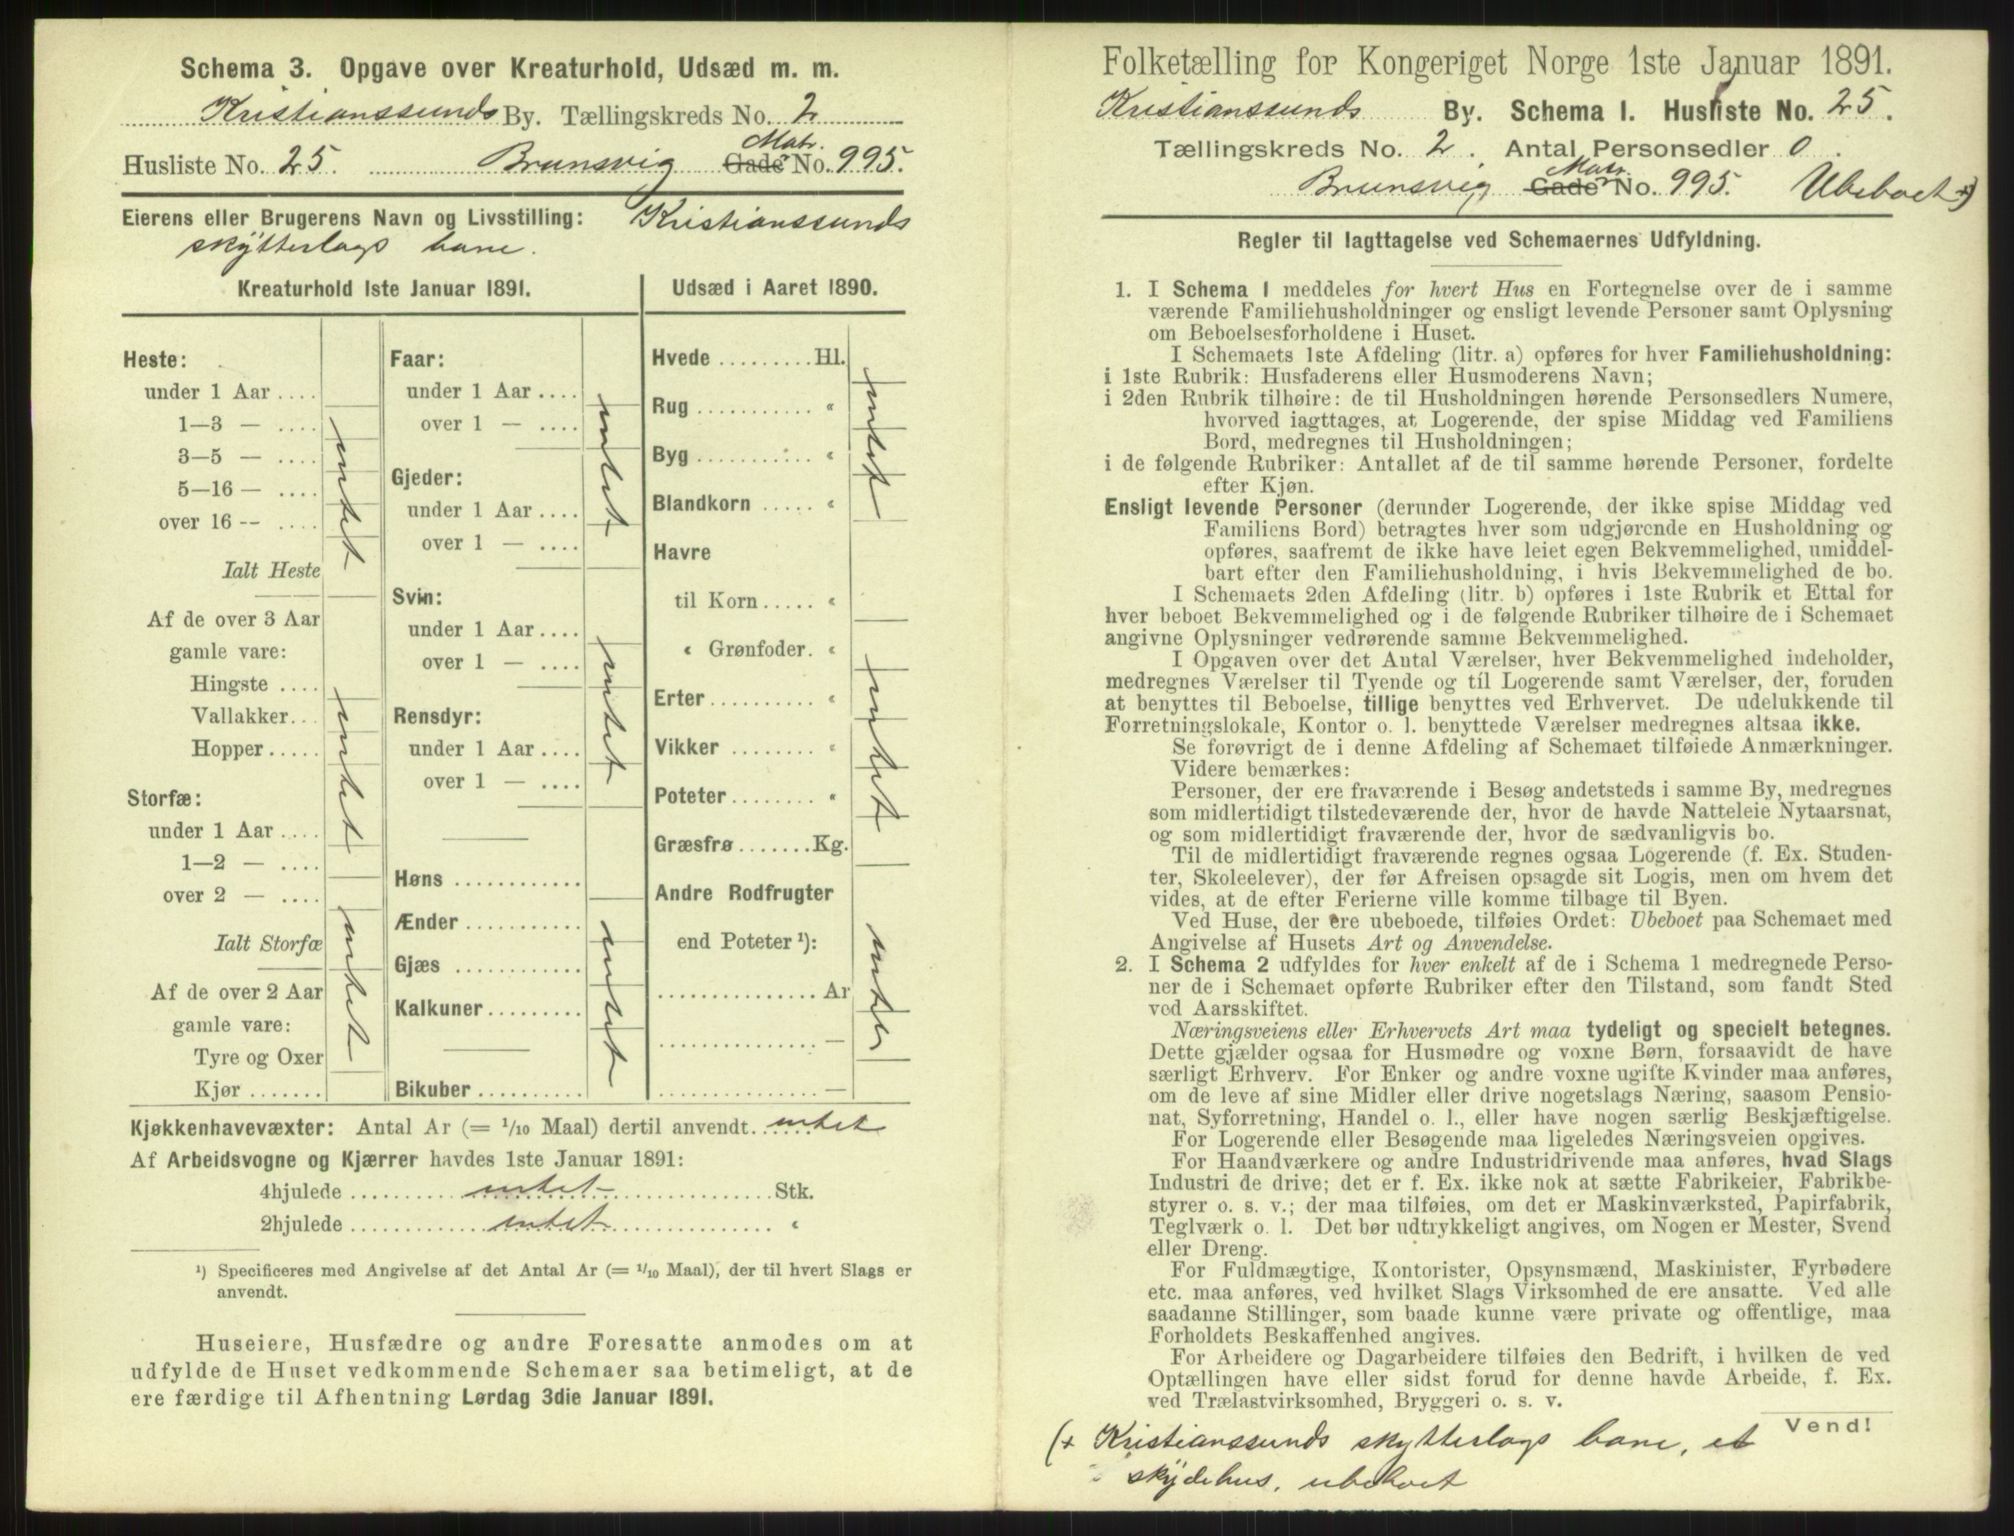 Schema 3. Opgave over Kreaturhold, Udsæd m. m.
Kristianssunds By. Tællingskreds No. 2
Matr.
Husliste No. 25. Brunsvig Gade No. 995.
Eierens eller Brugerens Navn og Livsstilling: Kristianssunds
skytterlags bane.
Kreaturhold 1ste Januar 1891.
Heste:
under 1 Aar ....
1—3 — ....
3—5 — ....
5—16 — ....
over 16 -- ....
Ialt Heste
intet
Af de over 3 Aar
gamle vare:
Hingste ....
Vallakker...
Hopper .....
intet
Storfæ:
under 1 Aar ....
1—2 — ....
over 2 — ....
Ialt Storfæ
Af de over 2 Aar
gamle vare:
Tyre og Oxer
Kjør .......
intet
Faar:
under 1 Aar ....
over 1 — ....
Gjeder:
under 1 Aar ....
over 1 — ....
intet
Svin:
under 1 Aar ....
over 1 — ....
Rensdyr:
under 1 Aar ....
over 1 — ....
intet
Høns ............
Ænder ...........
Gjæs ............
Kalkuner .........
Bikuber ..........
intet
Udsæd i Aaret 1890.
Hvede .........Hl.
Rug ........... “
Byg ........... “
Blandkorn ..... “
intet
Havre
til Korn ..... “
“ Grønfoder. “
Erter .......... “
Vikker ........ “
Poteter ........ “
Græsfrø .......Kg.
intet
Andre Rodfrugter
end Poteter ¹):
............... Ar
............... —
............... —
intet
Kjøkkenhavevæxter: Antal Ar (= 1/10 Maal) dertil anvendt. intet
Af Arbeidsvogne og Kjærrer havdes 1ste Januar 1891:
4hjulede ........ intet ........ Stk.
2hjulede ........ intet ........ “
¹) Specificeres med Angivelse af det Antal Ar (= 1/10 Maal), der til hvert Slags er
anvendt.
Huseiere, Husfædre og andre Foresatte anmodes om at
udfylde de Huset vedkommende Schemaer saa betimeligt, at de
ere færdige til Afhentning Lørdag 3die Januar 1891.
Folketælling for Kongeriget Norge 1ste Januar 1891.
Kristianssunds By. Schema I. Husliste No. 25.
Tællingskreds No. 2. Antal Personsedler 0.
Matr.
Brunsvig Gade No. 995. Ubeboet +)
Regler til Iagttagelse ved Schemaernes Udfyldning.
1. I Schema 1 meddeles for hvert Hus en Fortegnelse over de i samme
værende Familiehusholdninger og ensligt levende Personer samt Oplysning
om Beboelsesforholdene i Huset.
I Schemaets 1ste Afdeling (litr. a) opføres for hver Familiehusholdning:
i 1ste Rubrik: Husfaderens eller Husmoderens Navn;
i 2den Rubrik tilhøire: de til Husholdningen hørende Personsedlers Numere,
hvorved iagttages, at Logerende, der spise Middag ved Familiens
Bord, medregnes til Husholdningen;
i de følgende Rubriker: Antallet af de til samme hørende Personer, fordelte
efter Kjøn.
Ensligt levende Personer (derunder Logerende, der ikke spise Middag ved
Familiens Bord) betragtes hver som udgjørende en Husholdning og
opføres, saafremt de ikke have leiet egen Bekvemmelighed, umiddel-
bart efter den Familiehusholdning, i hvis Bekvemmelighed de bo.
I Schemaets 2den Afdeling (litr. b) opføres i 1ste Rubrik et Ettal for
hver beboet Bekvemmelighed og i de følgende Rubriker tilhøire de i Schemaet
angivne Oplysninger vedrørende samme Bekvemmelighed.
I Opgaven over det Antal Værelser, hver Bekvemmelighed indeholder,
medregnes Værelser til Tyende og til Logerende samt Værelser, der, foruden
at benyttes til Beboelse, tillige benyttes ved Erhvervet. De udelukkende til
Forretningslokale, Kontor o. l. benyttede Værelser medregnes altsaa ikke.
Se forøvrigt de i denne Afdeling af Schemaet tilføiede Anmærkninger.
Videre bemærkes:
Personer, der ere fraværende i Besøg andetsteds i samme By, medregnes
som midlertidigt tilstedeværende der, hvor de havde Natteleie Nytaarsnat,
og som midlertidigt fraværende der, hvor de sædvanligvis bo.
Til de midlertidigt fraværende regnes ogsaa Logerende (f. Ex. Studen-
ter, Skoleelever), der før Afreisen opsagde sit Logis, men om hvem det
vides, at de efter Ferierne ville komme tilbage til Byen.
Ved Huse, der ere ubeboede, tilføies Ordet: Ubeboet paa Schemaet med
Angivelse af Husets Art og Anvendelse.
2. I Schema 2 udfyldes for hver enkelt af de i Schema 1 medregnede Perso-
ner de i Schemaet opførte Rubriker efter den Tilstand, som fandt Sted
ved Aarsskiftet.
Næringsveiens eller Erhvervets Art maa tydeligt og specielt betegnes.
Dette gjælder ogsaa for Husmødre og voxne Børn, forsaavidt de have
særligt Erhverv. For Enker og andre voxne ugifte Kvinder maa anføres,
om de leve af sine Midler eller drive nogetslags Næring, saasom Pensio-
nat, Syforretning, Handel o. l., eller have nogen særlig Beskjæftigelse.
For Logerende eller Besøgende maa ligeledes Næringsveien opgives.
For Haandværkere og andre Industridrivende maa anføres, hvad Slags
Industri de drive; det er f. Ex. ikke nok at sætte Fabrikeier, Fabrikbe-
styrer o. s. v.; der maa tilføies, om det er Maskinværksted, Papirfabrik,
Teglværk o. l. Det bør udtrykkeligt angives, om Nogen er Mester, Svend
eller Dreng.
For Fuldmægtige, Kontorister, Opsynsmænd, Maskinister, Fyrbødere
etc. maa anføres, ved hvilket Slags Virksomhed de ere ansatte. Ved alle
saadanne Stillinger, som baade kunne være private og offentlige, maa
Forholdets Beskaffenhed angives.
For Arbeidere og Dagarbeidere tilføies den Bedrift, i hvilken de ved
Optællingen have eller sidst forud for denne havde Arbeide, f. Ex.
ved Trælastvirksomhed, Bryggeri o. s. v.
Vend!
(+ Kristianssunds skytterlags bane, et
skydehus, ubeboet